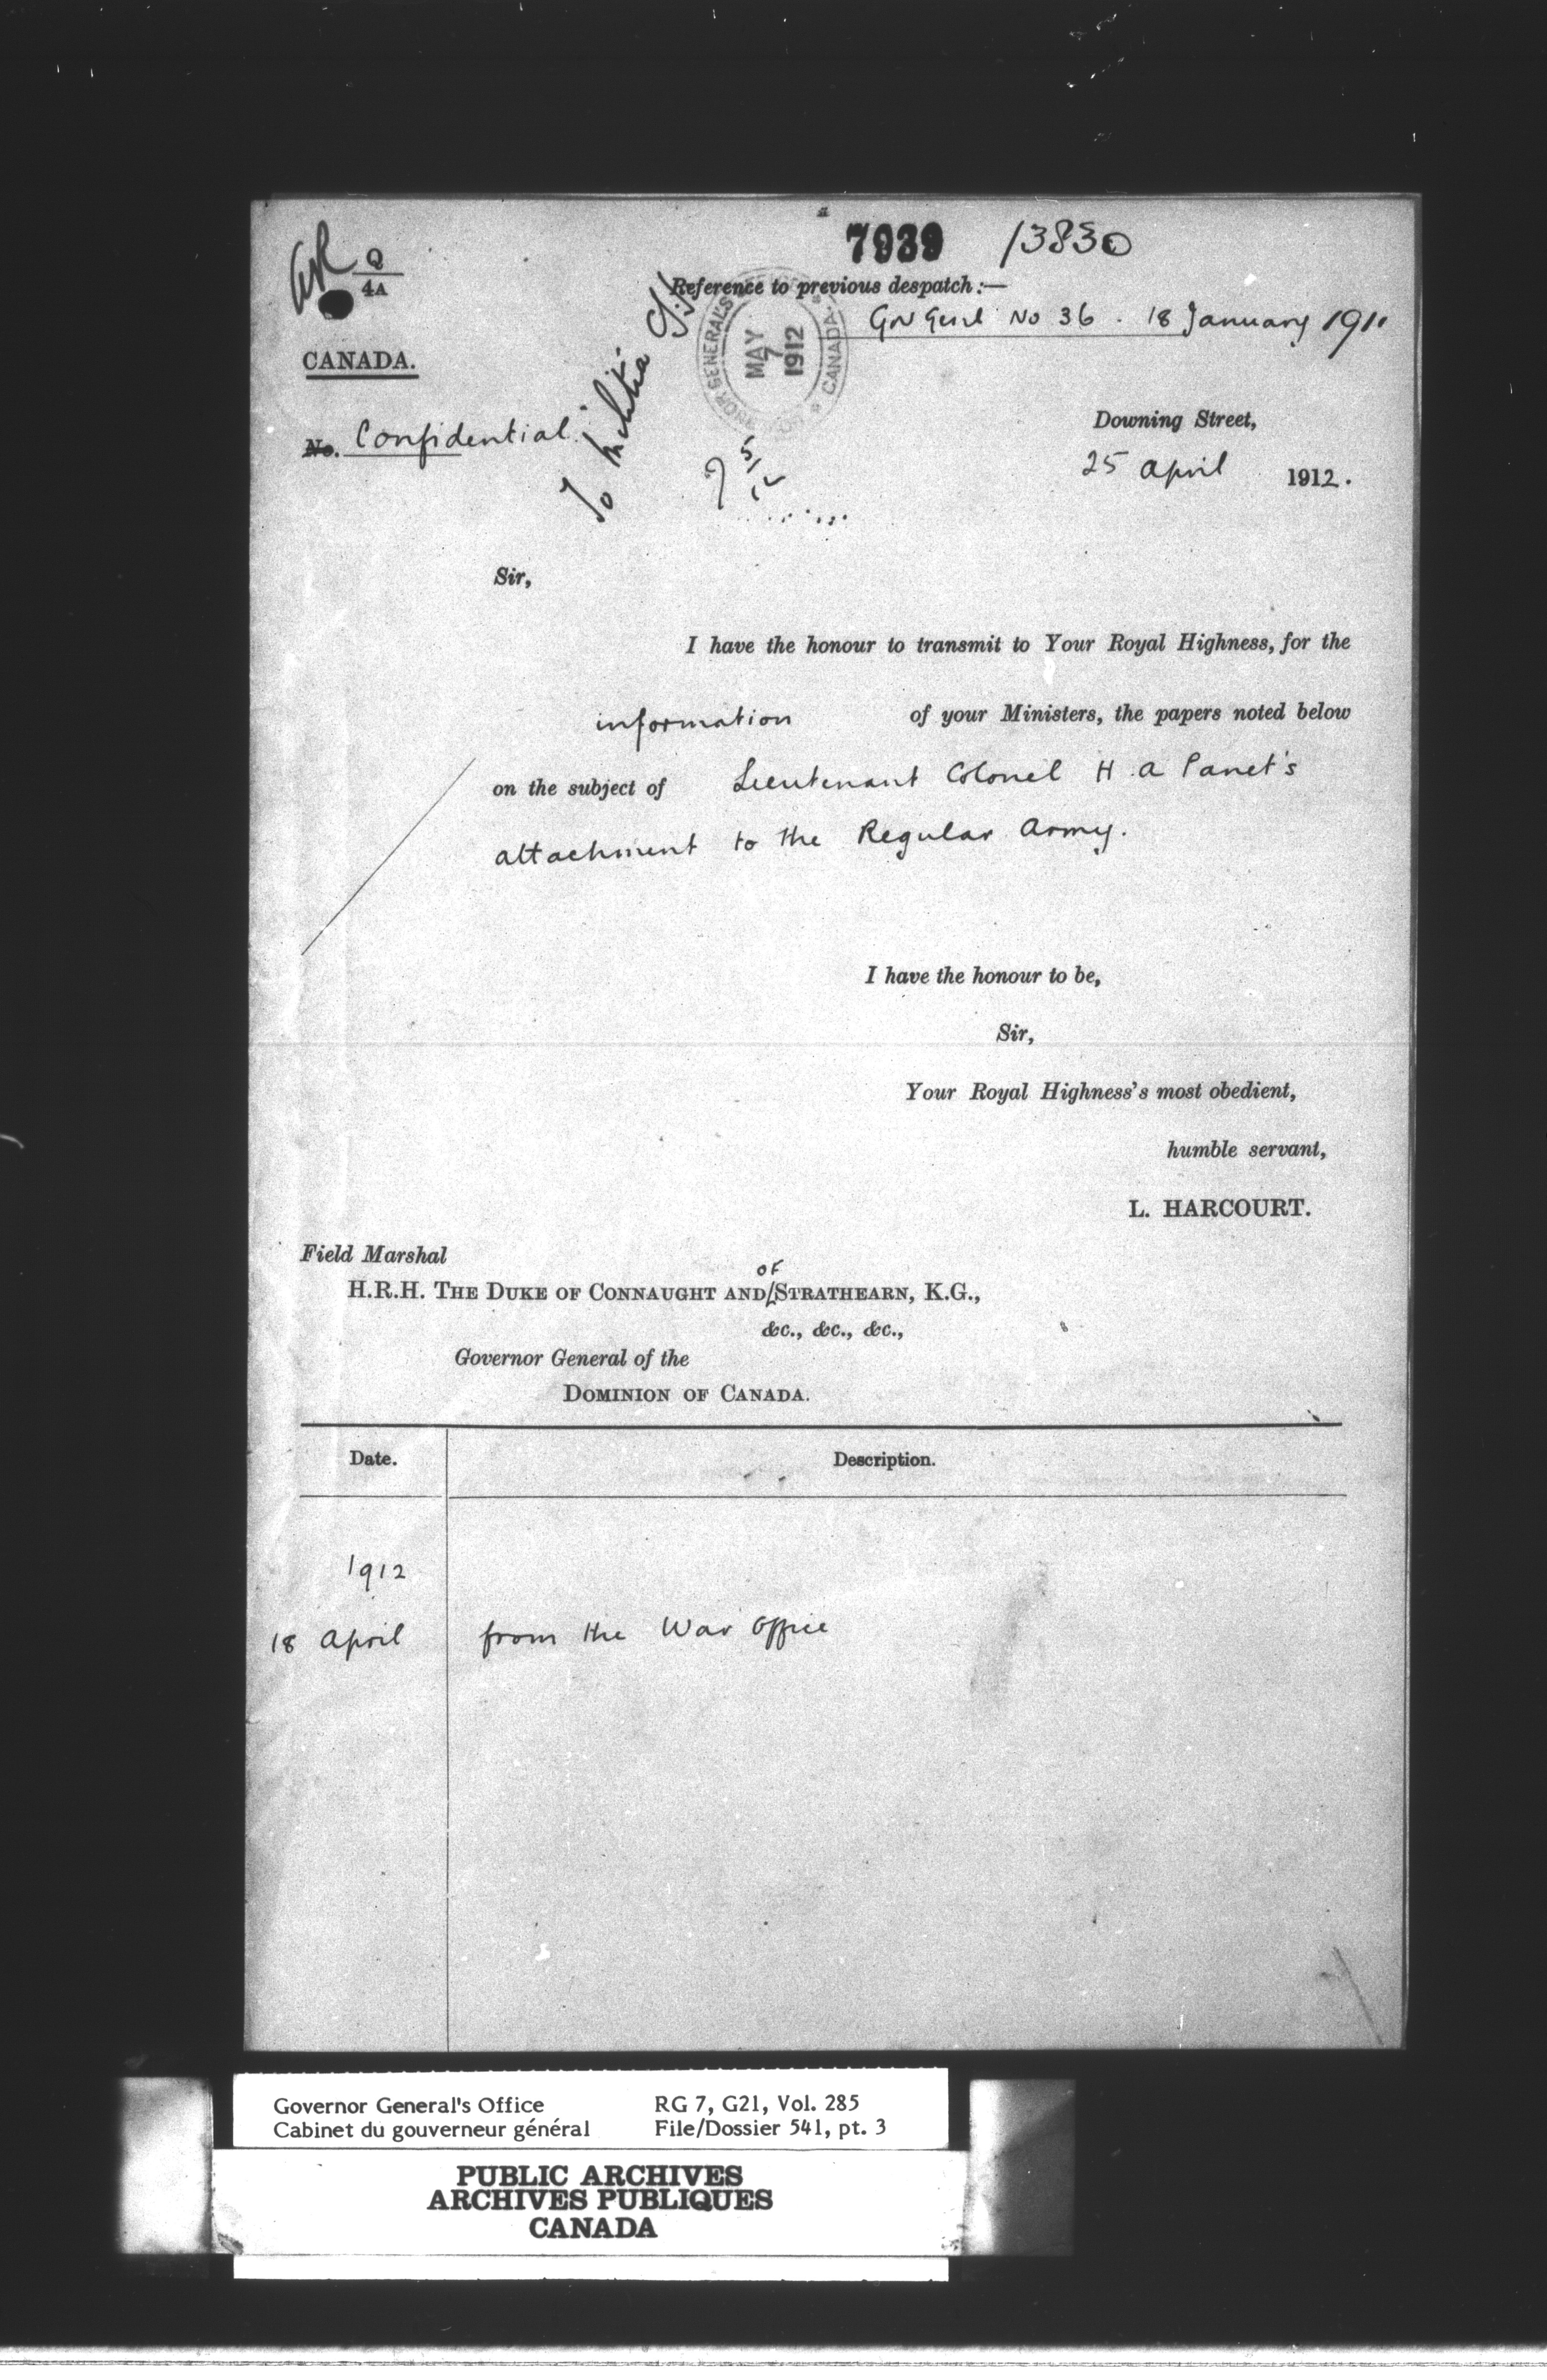 7939 13830
Q
4A
Reference to previous despatch :—
Gov Genl No 36 . 18 January 1911
GOVERNOR GENERAL'S OFFICE
MAY
7
1912
CANADA.
CANADA.
To Militia
No. Confidential.
Downing Street,
25 April 1912.
7
5/12
Sir,
I have the honour to transmit to Your Royal Highness, for the
information of your Ministers, the papers noted below
on the subject of Lieutenant Colonel H. A Panet's
attachment to the Regular Army.
I have the honour to be,
Sir,
Your Royal Highness's most obedient,
humble servant,
L. HARCOURT.
Field Marshal
H.R.H. THE DUKE OF CONNAUGHT AND OF STRATHEARN, K.G.,
&c., &c., &c.,
Governor General of the
DOMINION OF CANADA.
Date. Description.
1912
18 April from the War Office
Governor General's Office RG 7, G21, Vol. 285
Cabinet du gouverneur général File/Dossier 541, pt. 3
PUBLIC ARCHIVES
ARCHIVES PUBLIQUES
CANADA